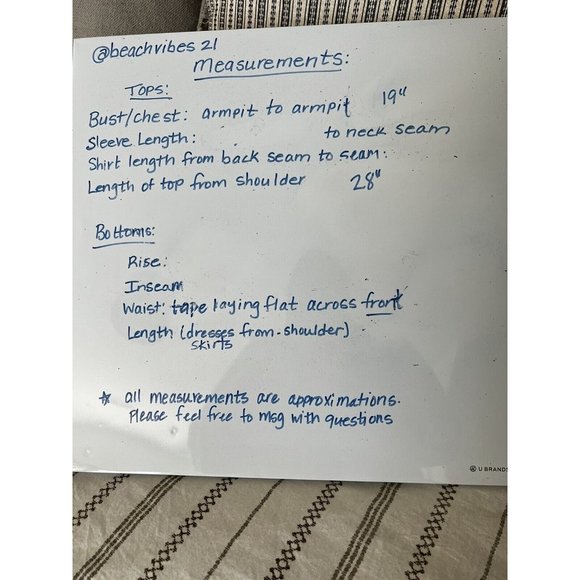 @beachvibes 21
Measurements:
Tops:
Bust/chest: armpit to armpit 19"
Sleeve Length: to neck seam
Shirt length from back seam to seam:
Length of top from shoulder 28"
Bottoms:
Rise:
Inseam
Waist: tape laying flat across front
Length (dresses from shoulder)
skirts
☆ all measurements are approximations.
Please feel free to msg with questions
U BRANDS